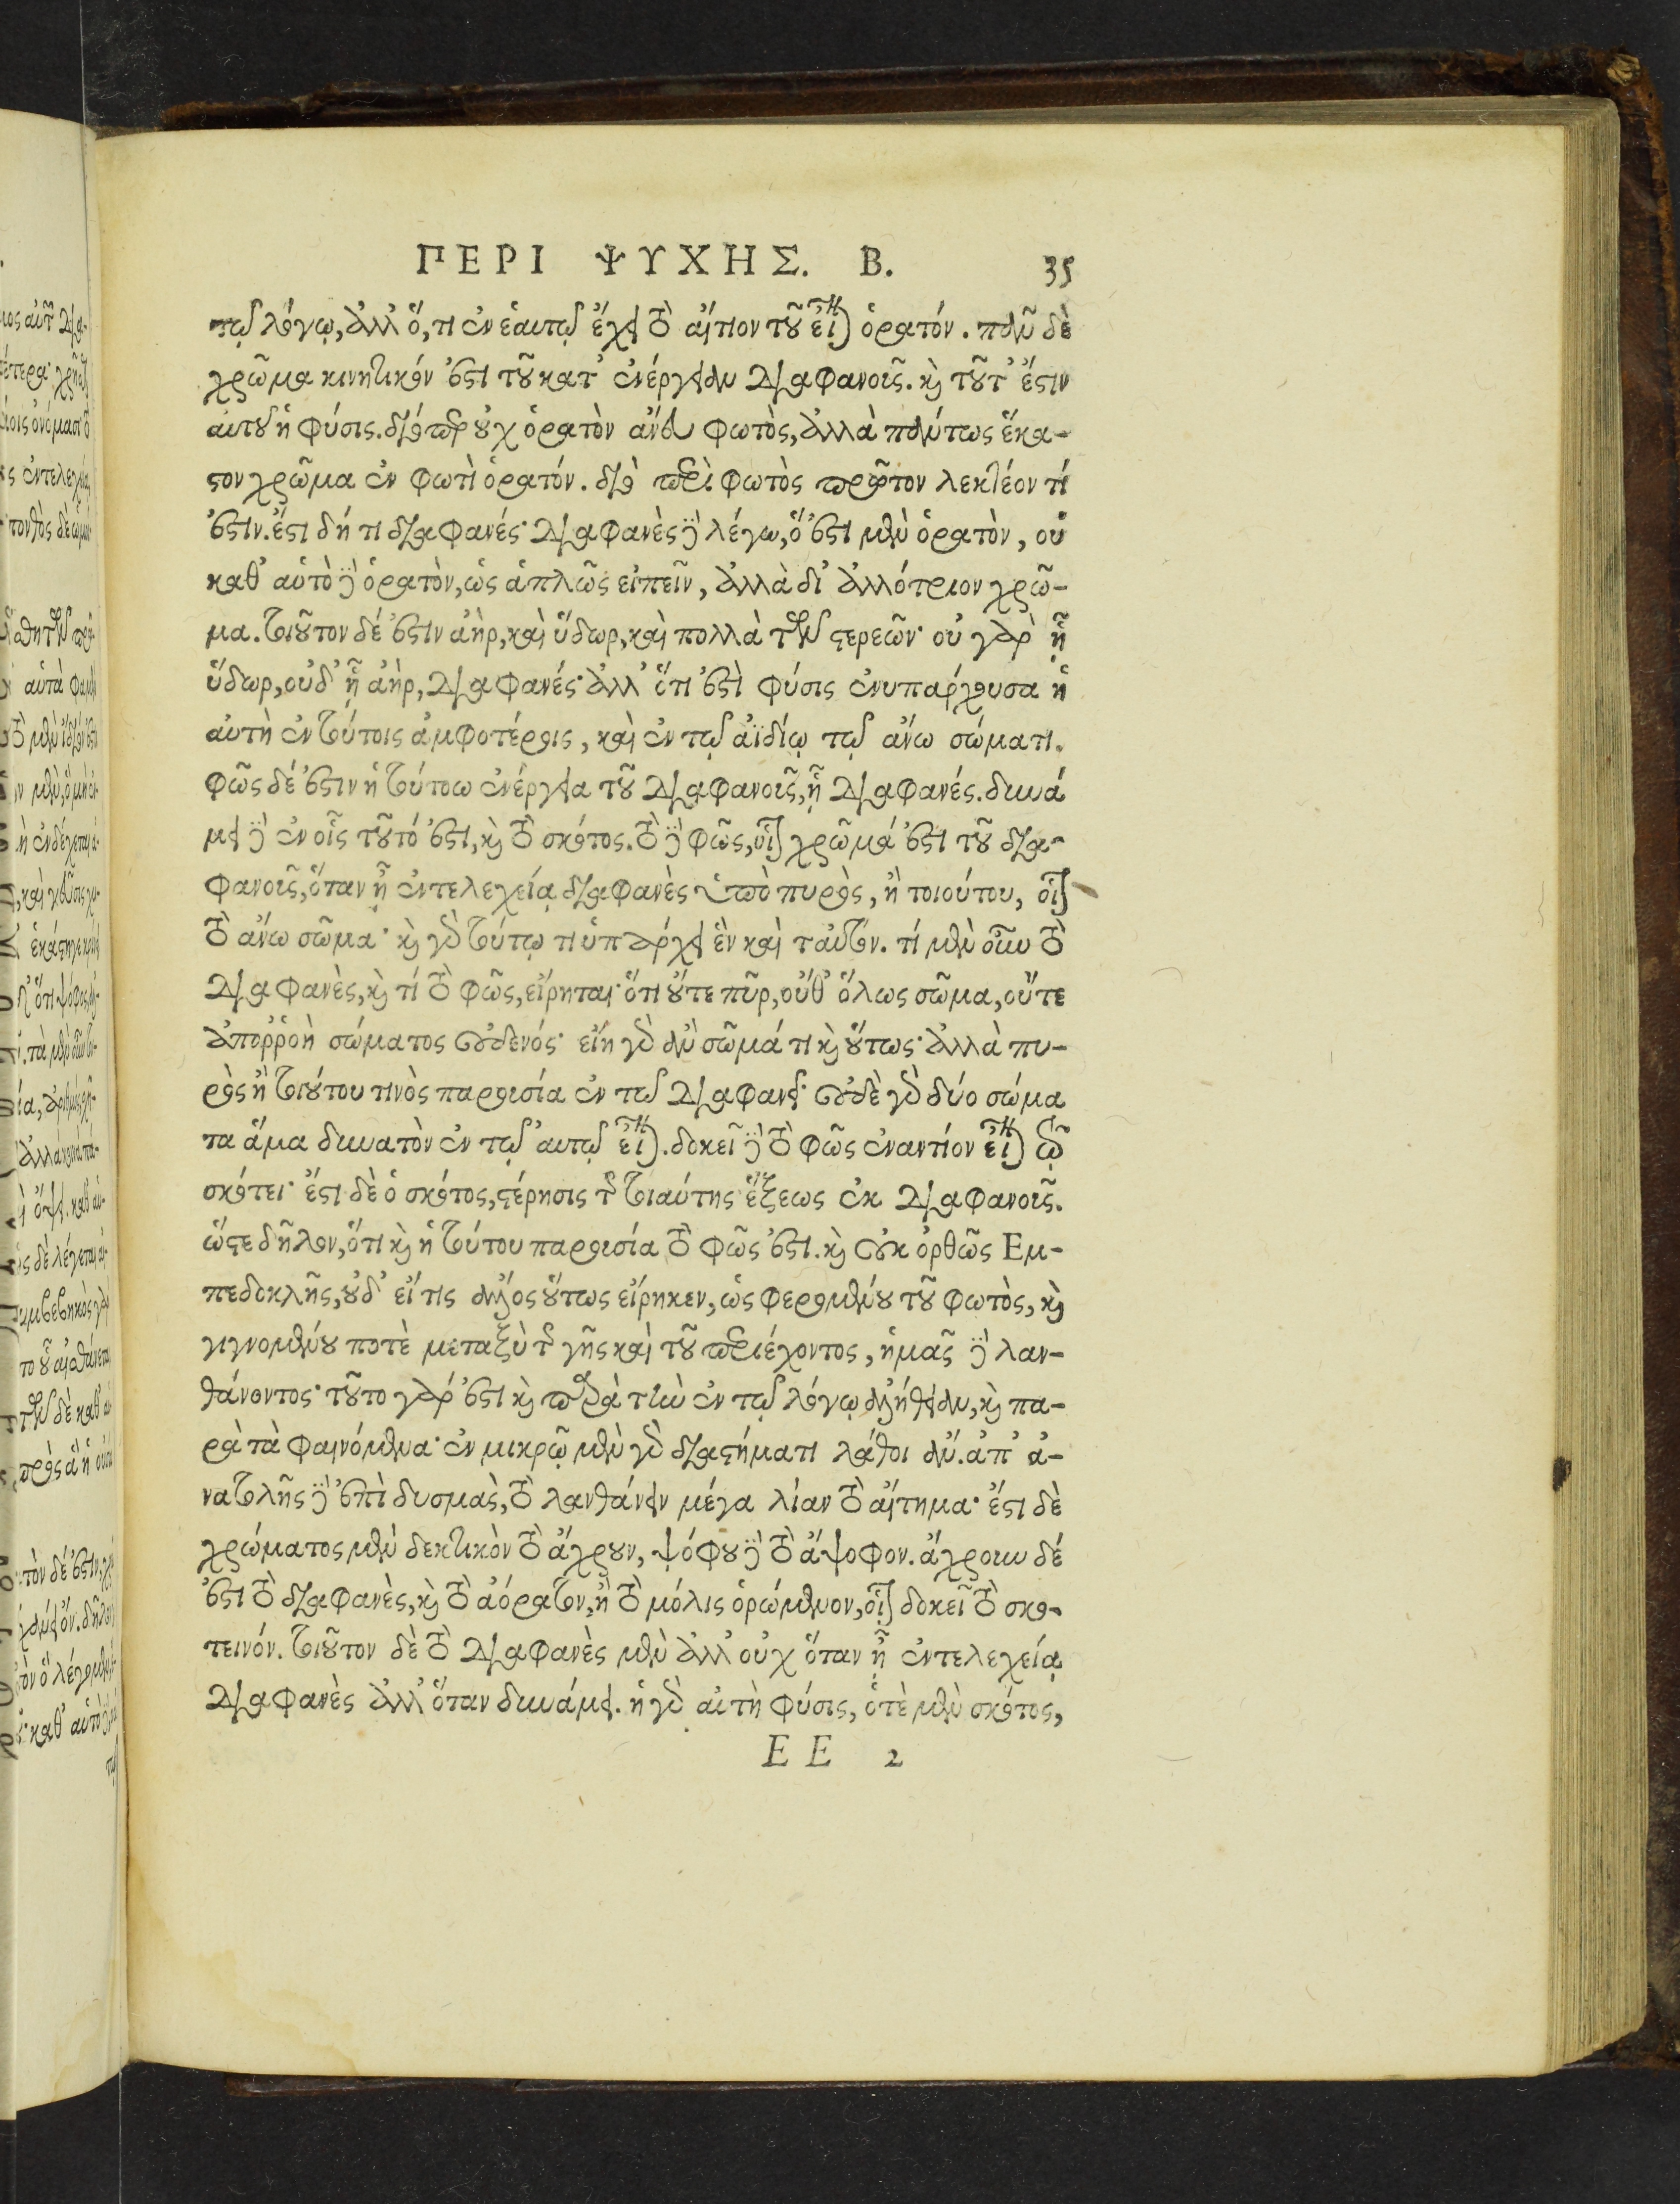 ΠΕΡΙ ΨΥΧΗΣ. Β. 35
τῷ λόγῳ, ἀλλ' ὅ, τι ἐν ἑαυτῷ ἔχει τὸ αἴτιον τοῦ εἶναι ὁρατόν. πᾶν δὲ
χρῶμα κινητικόν ἐστι τοῦ κατ' ἐνέργειαν διαφανοῦς. καὶ τοῦτ' ἔστιν
αὐτοῦ ἡ φύσις. διόπερ οὐχ ὁρατὸν ἄνευ φωτὸς, ἀλλὰ πάντως ἕκα-
στον χρῶμα ἐν φωτὶ ὁρατόν. διὸ περὶ φωτὸς πρῶτον λεκτέον τί
ἐστιν. ἔστι δή τι διαφανές· διαφανὲς δὲ λέγω, ὅ ἐστι μὲν ὁρατὸν, οὐ
καθ' αὑτὸ δὲ ὁρατὸν, ὡς ἁπλῶς εἰπεῖν, ἀλλὰ δι' ἀλλότριον χρῶ-
μα. τοιοῦτον δέ ἐστιν ἀὴρ, καὶ ὕδωρ, καὶ πολλὰ τῶν στερεῶν· οὐ γὰρ ᾗ
ὕδωρ, οὐδ' ᾗ ἀὴρ, διαφανές· ἀλλ' ὅτι ἐστὶ φύσις ἐνυπάρχουσα ἡ
αὐτὴ ἐν τούτοις ἀμφοτέροις, καὶ ἐν τῷ ἀϊδίῳ τῷ ἄνω σώματι.
φῶς δέ ἐστιν ἡ τούτου ἐνέργεια τοῦ διαφανοῦς, ᾗ διαφανές. δυνά
μει δὲ ἐν οἷς τοῦτό ἐστι, καὶ τὸ σκότος. τὸ δὲ φῶς, οἷον χρῶμά ἐστι τοῦ δια-
φανοῦς, ὅταν ᾖ ἐντελεχείᾳ διαφανὲς ὑπὸ πυρὸς, ἢ τοιούτου, οἷον
τὸ ἄνω σῶμα· καὶ γὰρ τούτῳ τι ὑπάρχει ἓν καὶ ταὐτόν. τί μὲν οὖν τὸ
διαφανὲς, καὶ τί τὸ φῶς, εἴρηται· ὅτι οὔτε πῦρ, οὔθ' ὅλως σῶμα, οὔτε
ἀποῤῥοὴ σώματος οὐδενός· εἴη γὰρ ἂν σῶμά τι καὶ οὕτως· ἀλλὰ πυ-
ρὸς ἢ τοιούτου τινὸς παρουσία ἐν τῷ διαφανεῖ· οὐδὲ γὰρ δύο σώμα
τα ἅμα δυνατὸν ἐν τῷ αὐτῷ εἶναι. δοκεῖ δὲ τὸ φῶς ἐναντίον εἶναι τῷ
σκότει· ἔστι δὲ ὁ σκότος, στέρησις τῆς τοιαύτης ἕξεως ἐκ διαφανοῦς.
ὥστε δῆλον, ὅτι καὶ ἡ τούτου παρουσία τὸ φῶς ἐστι. καὶ οὐκ ὀρθῶς Εμ-
πεδοκλῆς, οὐδ' εἴ τις ἄλλος οὕτως εἴρηκεν, ὡς φερομένου τοῦ φωτὸς, καὶ
γιγνομένου ποτὲ μεταξὺ τῆς γῆς καὶ τοῦ περιέχοντος, ἡμᾶς δὲ λαν-
θάνοντος· τοῦτο γάρ ἐστι καὶ παρὰ τὴν ἐν τῷ λόγῳ ἀλήθειαν, καὶ πα-
ρὰ τὰ φαινόμενα· ἐν μικρῷ μὲν γὰρ διαστήματι λάθοι ἄν. ἀπ' ἀ-
νατολῆς δὲ ἐπὶ δυσμὰς, τὸ λανθάνειν μέγα λίαν τὸ αἴτημα· ἔστι δὲ
χρώματος μὲν δεκτικὸν τὸ ἄχρουν, ψόφου δὲ τὸ ἄψοφον. ἄχρουν δέ
ἐστι τὸ διαφανὲς, καὶ τὸ ἀόρατον, ἢ τὸ μόλις ὁρώμενον, οἷον δοκεῖ τὸ σκο-
τεινόν. τοιοῦτον δὲ τὸ διαφανὲς μὲν ἀλλ' οὐχ ὅταν ᾖ ἐντελεχείᾳ
διαφανὲς ἀλλ' ὅταν δυνάμει. ἡ γὰρ αὐτὴ φύσις, ὁτὲ μὲν σκότος,
EE 2